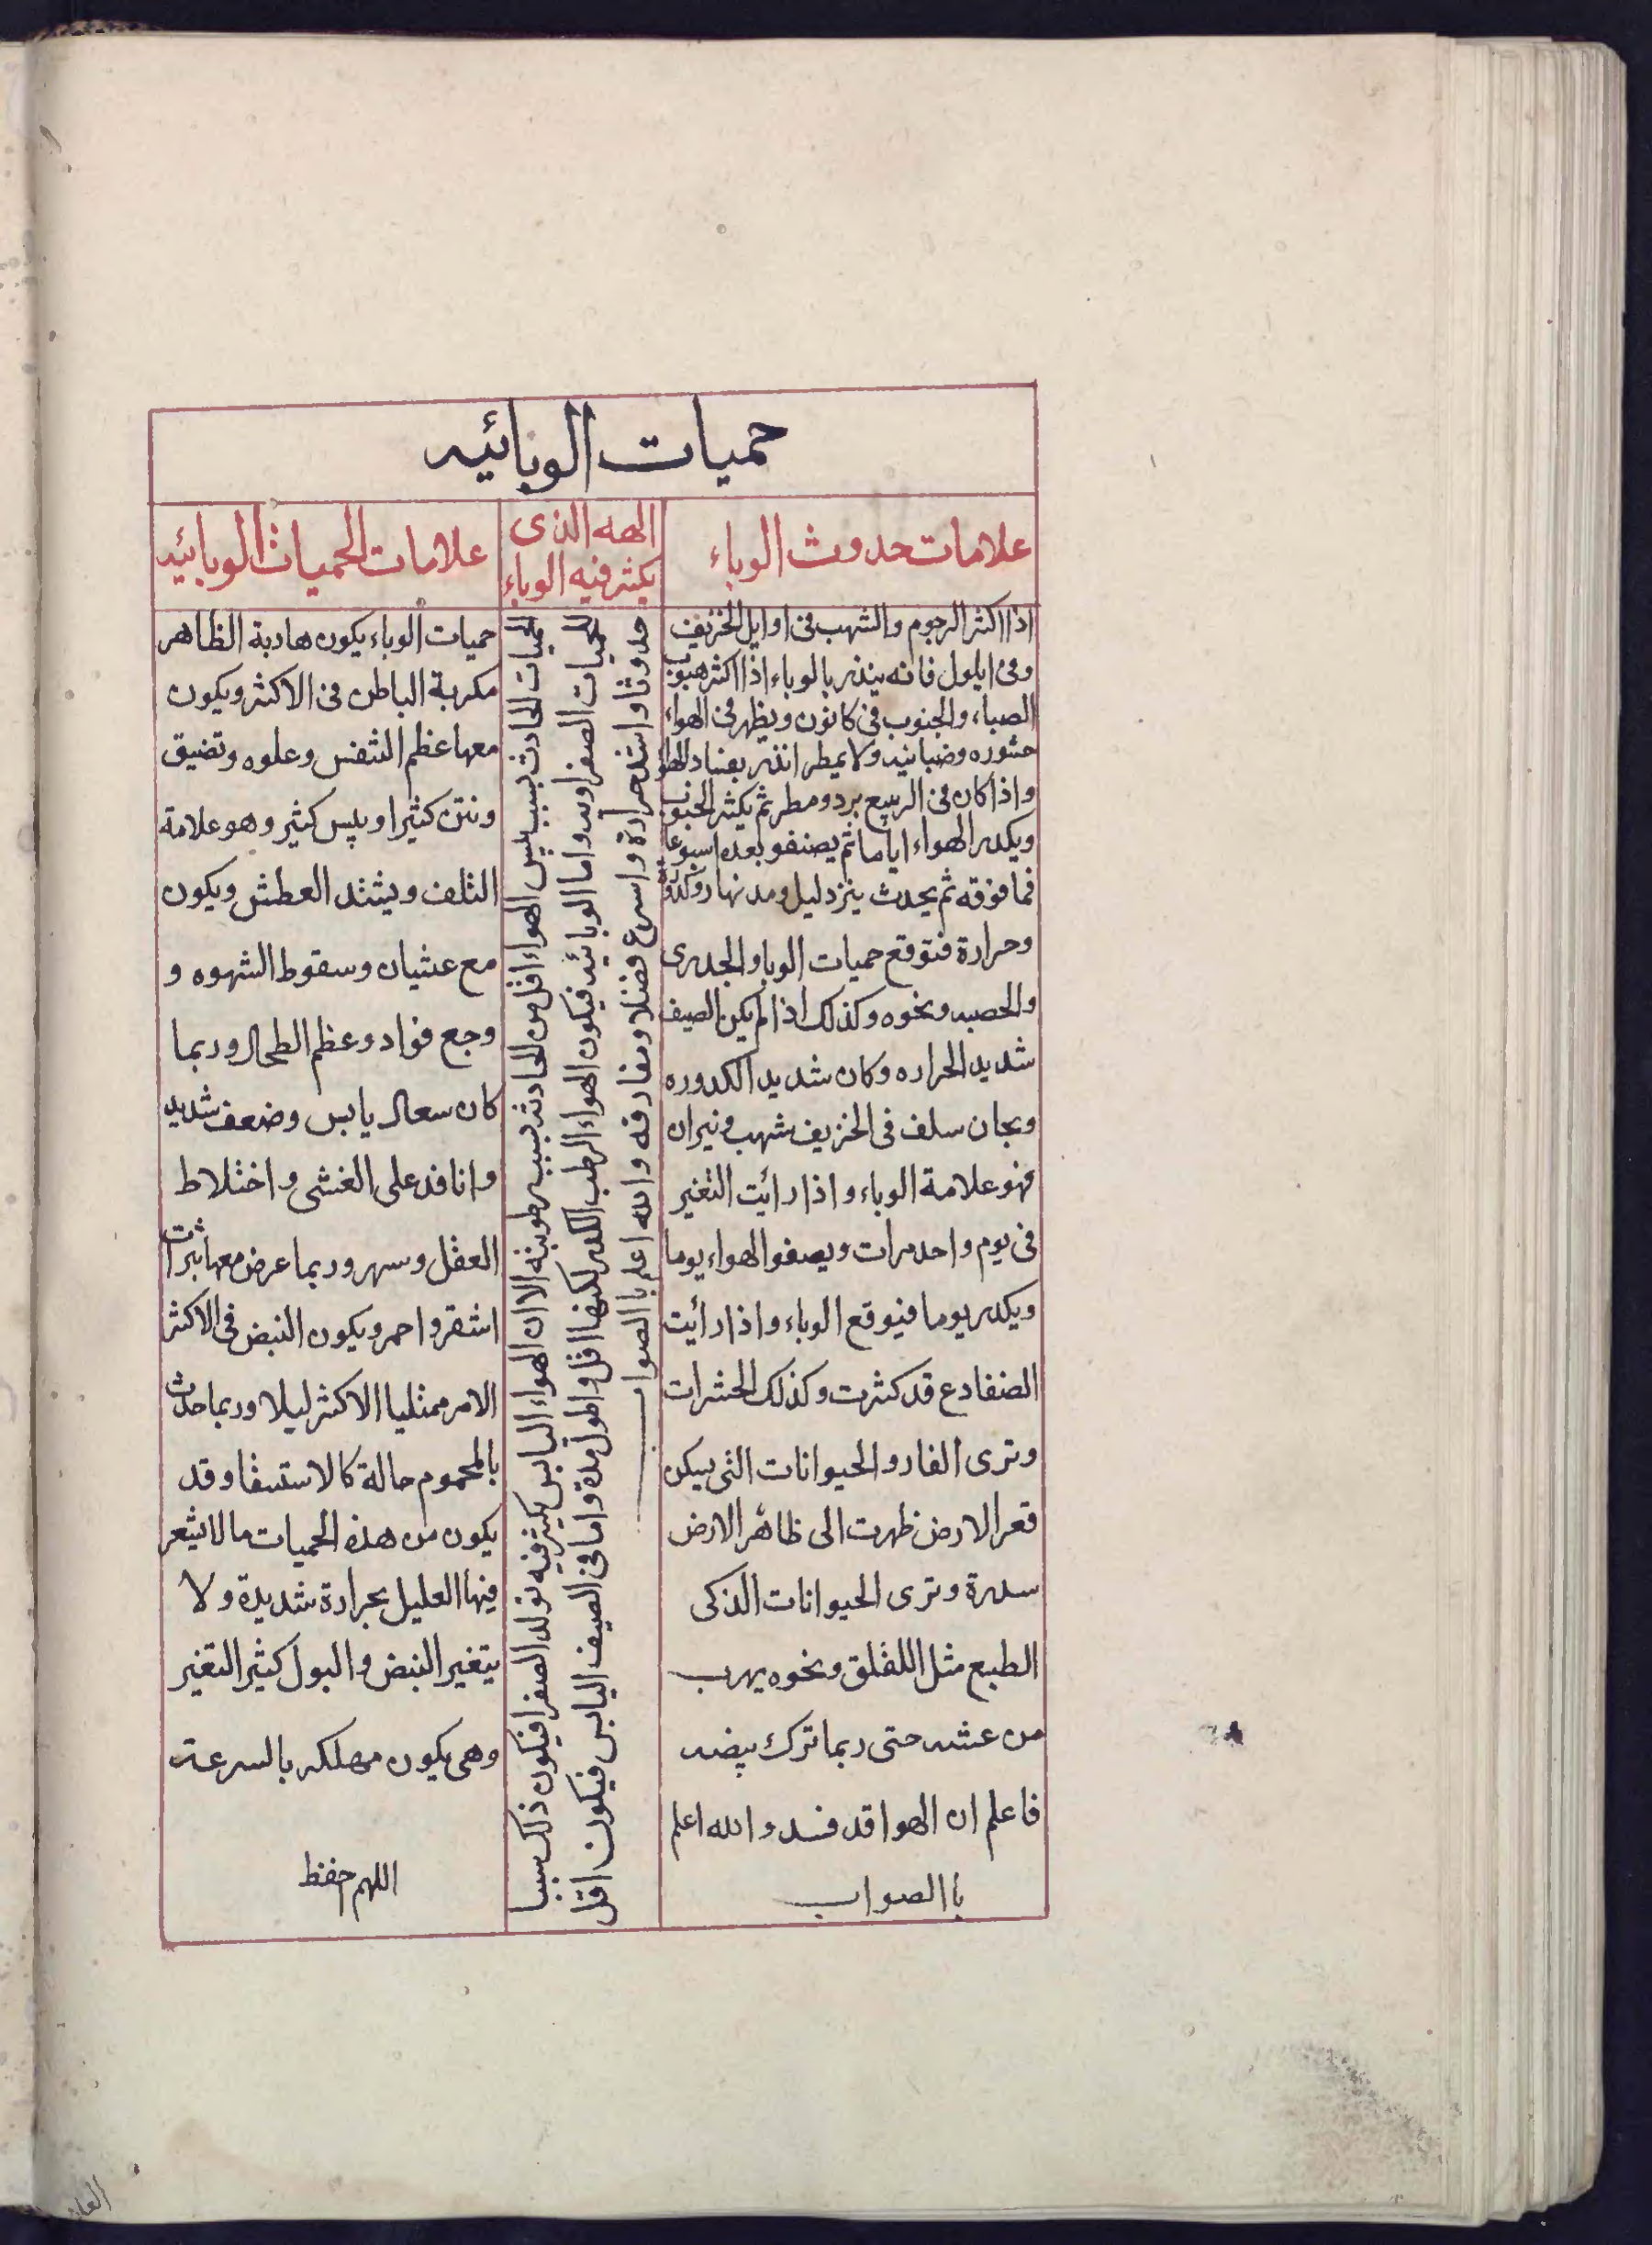 حميات الوبائيه
علامات حدوث الوباء
اذا اكثر الرجوم والشهب فى اوايل الخريف
وفى ايلول فانه ينذر بالوباء اذا اكثر هبوب
الصباء والجنوب فى كانون ويظهر فى الهواء
خثوره وضبابيه ولا يمطر انذر بفساد الهوا
واذا كان فى الربيع برد ومطر ثم يكثر الجنوب
ويكدر الهواء اياما ثم يصفو بعده اسبوعا
فما فوقه ثم يحدث برد ليل ومد نهار وكدورة
وحرارة فتوقع حميات الوبا والجدرى
والحصبه ونحوه وكذلك اذا لم يكن الصيف
شديد الحراره وكان شديد الكدوره
وبجان سلف فى الخريف شهب ونيران
فهو علامة الوباء واذا رائيت التغير
فى يوم واحد مرات ويصفوا الهواء يوما
ويكدر يوما فيتوقع الوباء واذا رأيت
الضفادع قد كثرت وكذلك الحشرات
وترى الفار والحيوانات التى يسكن
قعر الارض ظهرت الى ظاهر الارض
سدرة وترى الحيوانات الذكى
الطبع مثل اللقلق ونحوه يهرب
من عشه حتى ربما ترك بيضه
فاعلم ان الهوا قد فسد والله اعلم
با الصواب
الهه الذى
يكثر فيه الوباء
الحميات الحادث بسبب يبس الهواء اقل من الحادثه بسبب رطوبته الا ان الهواء اليابس يكثر فيه تولد الصفرا فيكون ذلك سببا
للحميات الصفراويه واما الوبائيه فيكون الهواء الرطب الكدر لكنها اقل واطول مدة واما فى الصيف اليابس فيكون اقل
حدوثا واشد حرارة واسرع فضلا ومفارقه والله اعلم با الصواب
علامات الحميات الوبائيه
حميات الوباء يكون هادية الظاهر
مكربة الباطن فى الاكثر ويكون
معها عظم التنفس وعلوه وتضيق
ونتن كثيرا ويبس كثير وهو علامة
التلف ويشتد العطش ويكون
مع غشيان وسقوط الشهوه و
وجع فواد وعظم الطحال وربما
كان سعال يابس وضعف شديد
وانا فد على الغشى واختلاط
العقل وسهر وربما عرض معها بثرات
اشقر واحمر ويكون النبض فى الاكثر
الامر ممثليا الاكثر ليلا وربما حدث
بالمحموم حالة كالاستسقا وقد
يكون من هذه الحميات ما لا يشعر
فيها العليل بحرارة شديدة ولا
يتغير النبض والبول كثير التغير
وهى يكون مهلكه بالسرعه
اللهم احفظ